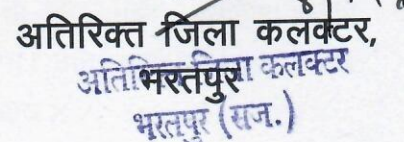 अतिरिक्त जिला कलक्टर,
भरतपुर
अतिरिक्त जिला कलक्टर
भरतपुर (राज.)